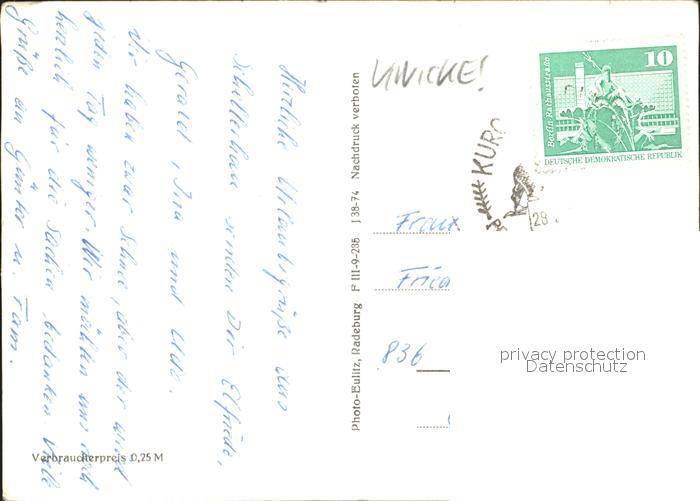 Herzliche Urlaubsgrüße aus
Schellerhau senden Dir Elfriede,
Gerald, Ina und Udo.
Wir haben zwar Schnee, aber der wird
jeden Tag weniger. Wir möchten uns noch
herzlich für die Sachen bedanken. Viele
Grüße an Günter u. Fam.
Verbraucherpreis 0,25 M
Photo-Eulitz, Radeburg P III-9-235 J 38-74 Nachdruck verboten
UNICKE!
KURO
29
Berlin Rathausstraße
10
DEUTSCHE DEMOKRATISCHE REPUBLIK
Frau
Frica
836
privacy protection
Datenschutz